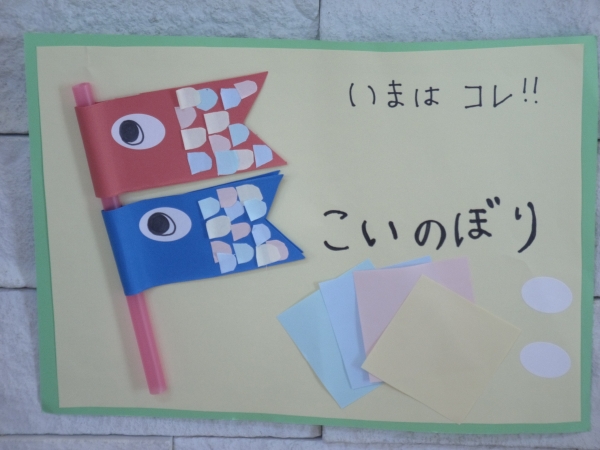 いまは コレ!!
こいのぼり